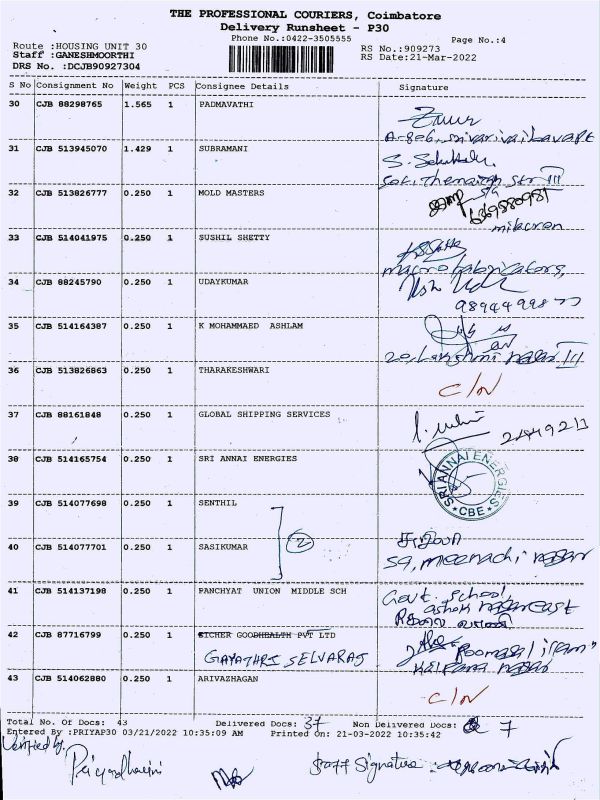 THE PROFESSIONAL COURIERS, Coimbatore
Delivery Runsheet - P30
Phone No.:0422-3505555
Page No.:4
Route :HOUSING UNIT 30
RS No.:909273
Staff :GANESHMOORTHI
RS Date:21-Mar-2022
DRS No. :DCJB90927304
S No Consignment No Weight PCS Consignee Details Signature
30 CJB 88298765 1.565 1 PADMAVATHI
31 CJB 513945070 1.429 1 SUBRAMANI
32 CJB 513826777 0.250 1 MOLD MASTERS
6369580981
33 CJB 514041975 0.250 1 SUSHIL SHETTY
macro fabricators,
34 CJB 88245790 0.250 1 UDAYKUMAR
35 CJB 514164387 0.250 1 K MOHAMMAED ASHLAM
20, Lakshmi nagar III
36 CJB 513826863 0.250 1 THARAKESHWARI C/N
37 CJB 88161848 0.250 1 GLOBAL SHIPPING SERVICES
38 CJB 514165754 0.250 1 SRI ANNAI ENERGIES
SRI ANNAI ENERGIES
* CBE *
39 CJB 514077698 0.250 1 SENTHIL
2
40 CJB 514077701 0.250 1 SASIKUMAR
59, meenachi nagar
41 CJB 514137198 0.250 1 PANCHYAT UNION MIDDLE SCH
Govt. School,
ashok nagar East
42 CJB 87716799 0.250 1 ETCHER GOODHEALTH PVT LTD
GAYATHRI SELVARAJ
Kalpana nagar
43 CJB 514062880 0.250 1 ARIVAZHAGAN C/N
Total No. Of Docs: 43 Delivered Docs: 37 Non Delivered Docs: 7
Entered By :PRIYAP30 03/21/2022 10:35:09 AM Printed On: 21-03-2022 10:35:42
Verified by.
Priyadharsini
Staff Signature